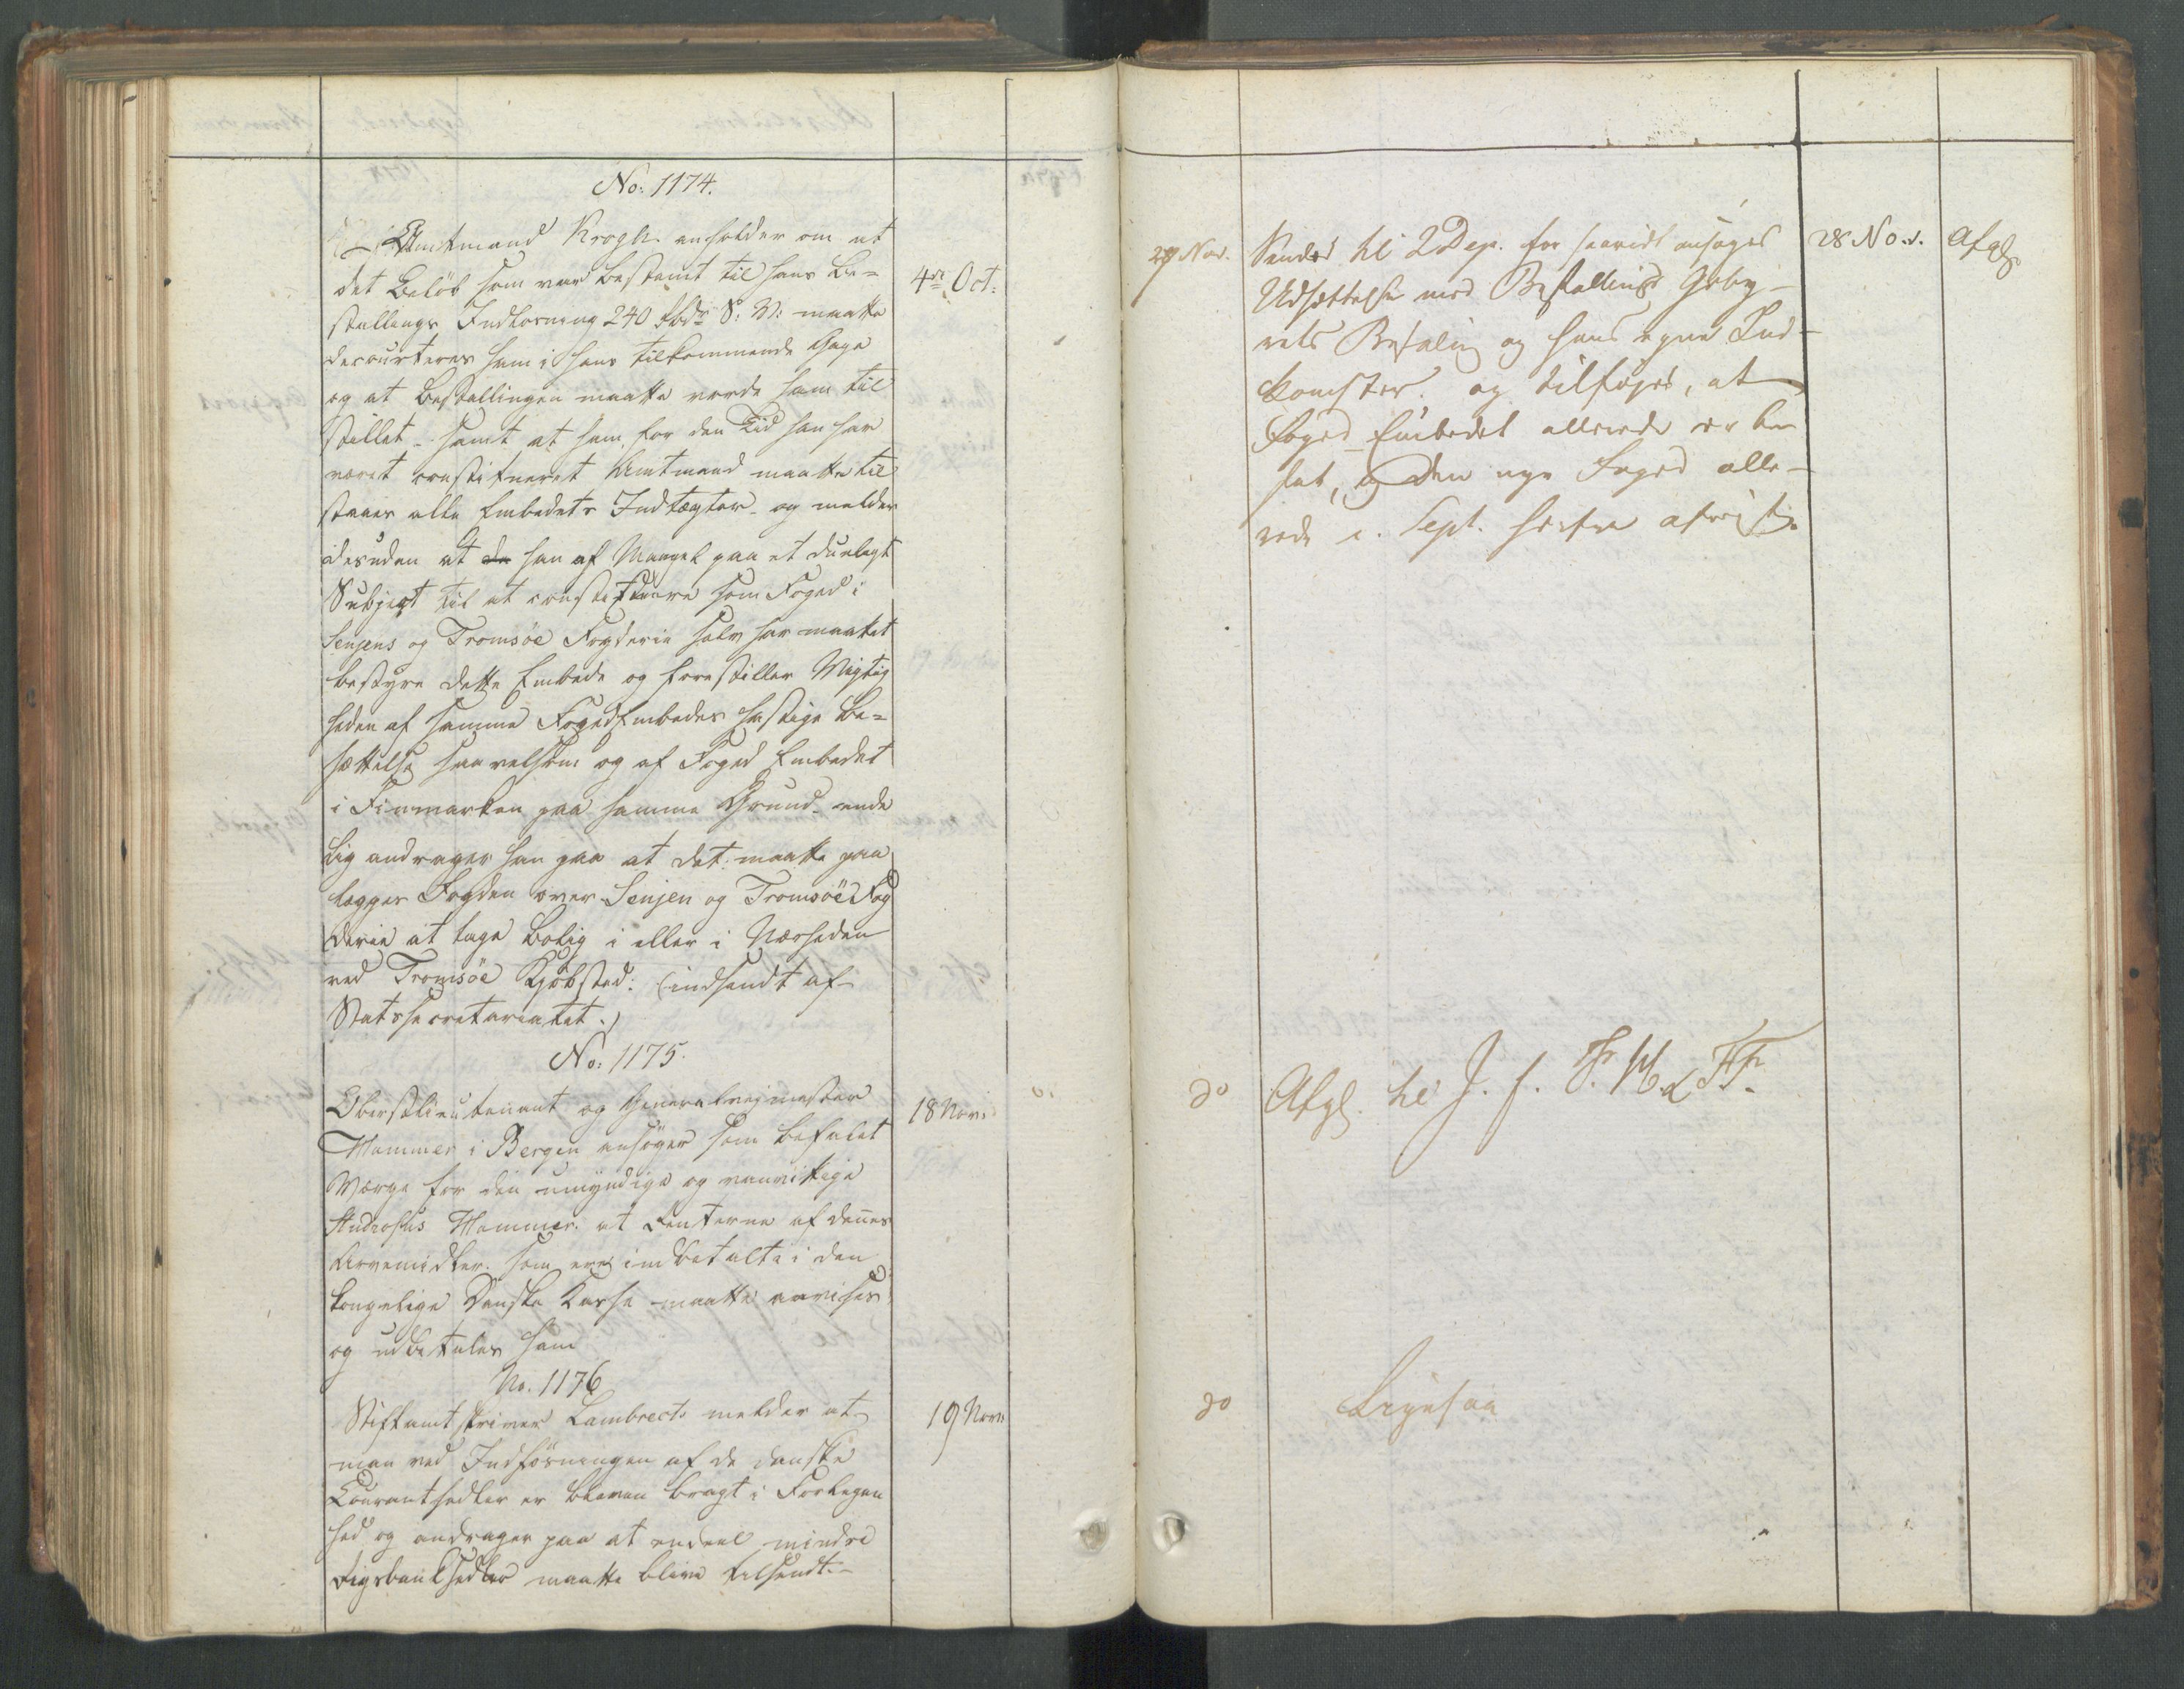 No: 1174.
Amtmand Krogh anholder om at
det Beløb som var bestemt til hans Be=
stallings Indløsning 240 Rbdr S: V: maatte
decourteres ham i hans tilkommende Gage
og at Bestallingen maatte vorde ham til
stillet - samt at ham for den Tid han har
været constitueret Amtmand maatte til
staaes alle Embedets Indtægter - og melder
desuden at da han af Mangel paa et duelegt
Subject til at constituere som Foged i
Senjens og Tromsöe Fogderie selv har maattet
bestyre dette Embede og forestiller Vigtig
heden af samme Fogedembedes hastige Be=
sættelse saavelsom og af Foged Embedet
i Finmarken paa samme Grund - ende
lig andrager han paa at det maatte paa
lægges Fogden over Senjen og Tromsöe Fog
derie at tage Bolig i eller i Nærheden
ved Tromsöe Kjøbsted: (indsendt af
Statssecretariatet.)
4de Oct:
No: 1175.
Oberstlieutenant og Generalveimester
Hammer i Bergen ansøger som befalet
Værge for den umyndige og vanvittige
Studiosus Hammer at Renterne af dennes
Arvemidler som ere indbetalte i den
kongelige Danske Kasse maatte anvises
og udbetales ham
18 Nov:
No. 1176
Stiftamtskriver Lambrects melder at
man ved Indførningen af de danske
Courantsedler er bleven bragt i Forlegen
hed og andrager paa at endeel mindre
Rigsbanksedler maatte blive tilsendt.-
19 Nov:
27 Nov.
Sendes til 2 Dep. for saavidt ansøges
Udsættelse med Bestallings Geby-
rets Betaling og hans egne Ind-
komster. og tilføyes, at
Foged Embedet allerede er be
sat, og den nye Foged alle-
rede i Sept. herfra afreist.
28 Nov.
Afg.
do
Afgl. til J. f. F. H. & FF.
do
Ligesaa